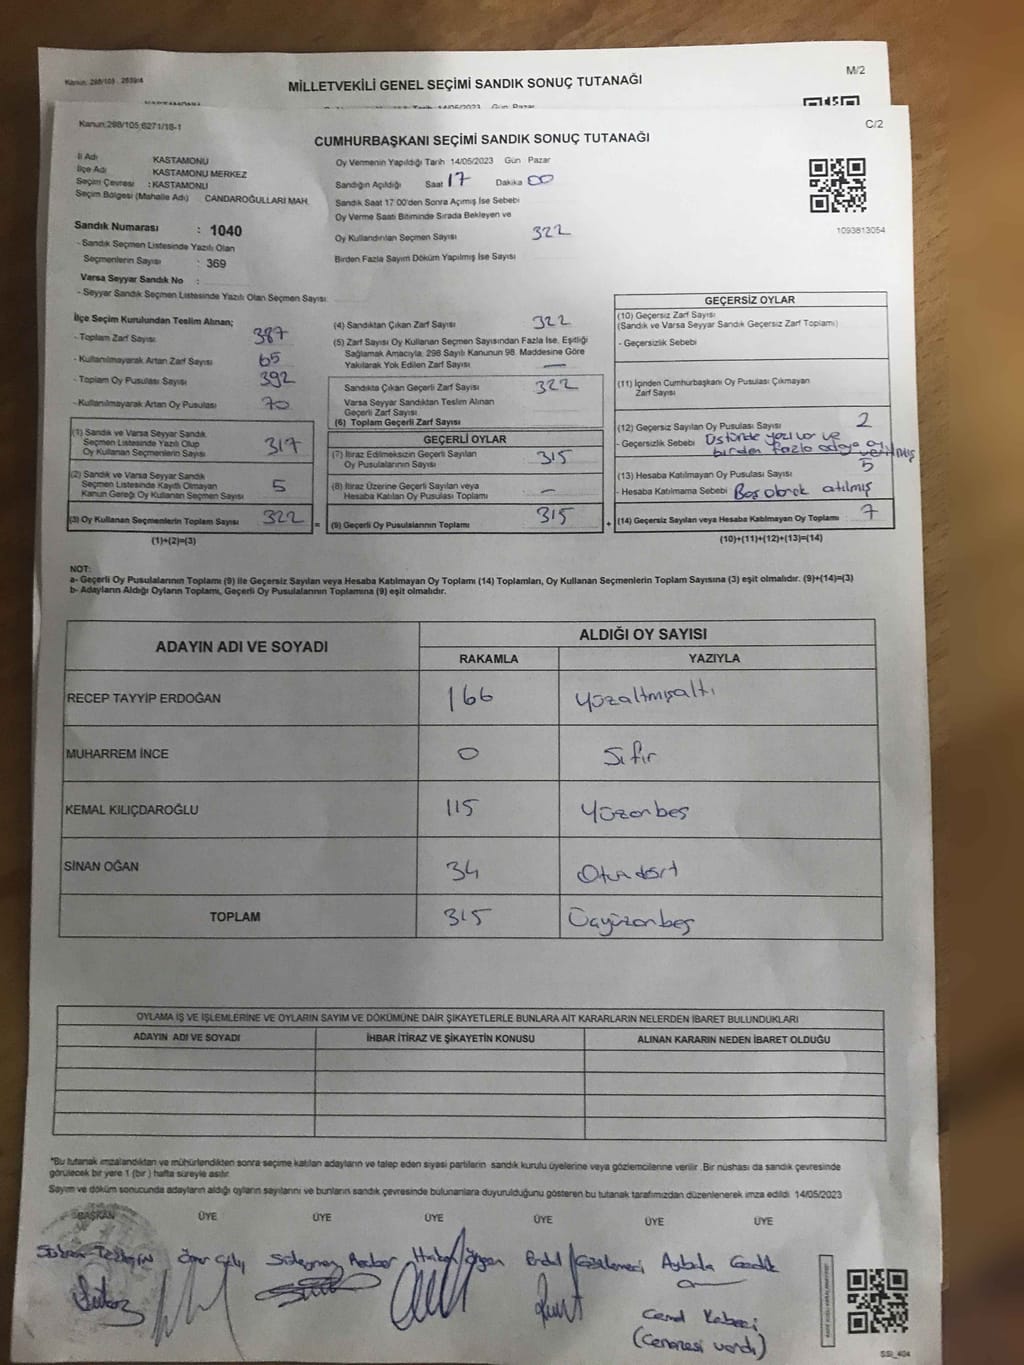 Kanun: 298/105 - 2839/4
M/2
MİLLETVEKİLİ GENEL SEÇİMİ SANDIK SONUÇ TUTANAĞI
KASTAMONU
14/05/2023 Gün Pazar
Kanun:298/105;6271/18-1
C/2
CUMHURBAŞKANI SEÇİMİ SANDIK SONUÇ TUTANAĞI
İl Adı KASTAMONU
İlçe Adı KASTAMONU MERKEZ
Seçim Çevresi : KASTAMONU
Seçim Bölgesi (Mahalle Adı) CANDAROĞULLARI MAH.
Sandık Numarası : 1040
- Sandık Seçmen Listesinde Yazılı Olan
Seçmenlerin Sayısı : 369
Varsa Seyyar Sandık No :
- Seyyar Sandık Seçmen Listesinde Yazılı Olan Seçmen Sayısı
Oy Vermenin Yapıldığı Tarih 14/05/2023 Gün Pazar
Sandığın Açıldığı Saat 17 Dakika 00
Sandık Saat 17:00'den Sonra Açılmış İse Sebebi
Oy Verme Saati Bitiminde Sırada Bekleyen ve
Oy Kullandırılan Seçmen Sayısı 322
Birden Fazla Sayım Döküm Yapılmış İse Sayısı
1093813054
İlçe Seçim Kurulundan Teslim Alınan;
- Toplam Zarf Sayısı 387
- Kullanılmayarak Artan Zarf Sayısı 65
- Toplam Oy Pusulası Sayısı 392
- Kullanılmayarak Artan Oy Pusulası 70
(1) Sandık ve Varsa Seyyar Sandık
Seçmen Listesinde Yazılı Olup
Oy Kullanan Seçmenlerin Sayısı 317
(2) Sandık ve Varsa Seyyar Sandık
Seçmen Listesinde Kayıtlı Olmayan
Kanun Gereği Oy Kullanan Seçmen Sayısı 5
(3) Oy Kullanan Seçmenlerin Toplam Sayısı 322 =
(1)+(2)=(3)
(4) Sandıktan Çıkan Zarf Sayısı 322
(5) Zarf Sayısı Oy Kullanan Seçmen Sayısından Fazla İse, Eşitliği
Sağlamak Amacıyla, 298 Sayılı Kanunun 98. Maddesine Göre
Yakılarak Yok Edilen Zarf Sayısı —
Sandıkta Çıkan Geçerli Zarf Sayısı 322
Varsa Seyyar Sandıktan Teslim Alınan
Geçerli Zarf Sayısı
(6) Toplam Geçerli Zarf Sayısı
GEÇERLİ OYLAR
(7) İtiraz Edilmeksizin Geçerli Sayılan
Oy Pusulalarının Sayısı 315
(8) İtiraz Üzerine Geçerli Sayılan veya
Hesaba Katılan Oy Pusulası Toplamı —
(9) Geçerli Oy Pusulalarının Toplamı 315 +
GEÇERSİZ OYLAR
(10) Geçersiz Zarf Sayısı
(Sandık ve Varsa Seyyar Sandık Geçersiz Zarf Toplamı)
- Geçersizlik Sebebi
(11) İçinden Cumhurbaşkanı Oy Pusulası Çıkmayan
Zarf Sayısı
(12) Geçersiz Sayılan Oy Pusulası Sayısı 2
- Geçersizlik Sebebi Üstünde yazı var ve
birden fazla adaya oy verilmiş
(13) Hesaba Katılmayan Oy Pusulası Sayısı 5
- Hesaba Katılmama Sebebi Boş olarak atılmış
(14) Geçersiz Sayılan veya Hesaba Katılmayan Oy Toplamı 7
(10)+(11)+(12)+(13)=(14)
NOT:
a- Geçerli Oy Pusulalarının Toplamı (9) ile Geçersiz Sayılan veya Hesaba Katılmayan Oy Toplamı (14) Toplamları, Oy Kullanan Seçmenlerin Toplam Sayısına (3) eşit olmalıdır. (9)+(14)=(3)
b- Adayların Aldığı Oyların Toplamı, Geçerli Oy Pusulalarının Toplamına (9) eşit olmalıdır.
ADAYIN ADI VE SOYADI
ALDIĞI OY SAYISI
RAKAMLA YAZIYLA
RECEP TAYYİP ERDOĞAN 166 Yüzaltmışaltı
MUHARREM İNCE 0 Sıfır
KEMAL KILIÇDAROĞLU 115 Yüzonbeş
SİNAN OĞAN 34 Otuzdört
TOPLAM 315 Üçyüzonbeş
OYLAMA İŞ VE İŞLEMLERİNE VE OYLARIN SAYIM VE DÖKÜMÜNE DAİR ŞİKAYETLERLE BUNLARA AİT KARARLARIN NELERDEN İBARET BULUNDUKLARI
ADAYIN ADI VE SOYADI İHBAR İTİRAZ VE ŞİKAYETİN KONUSU ALINAN KARARIN NEDEN İBARET OLDUĞU
*Bu tutanak imzalandıktan ve mühürlendikten sonra seçime katılan adayların ve talep eden siyasi partilerin sandık kurulu üyelerine veya gözlemcilerine verilir .Bir nüshası da sandık çevresinde
görülecek bir yere 1 (bir ) hafta süreyle asılır.
Sayım ve döküm sonucunda adayların aldığı oyların sayılarını ve bunların sandık çevresinde bulunanlara duyurulduğunu gösteren bu tutanak tarafımızdan düzenlenerek imza edildi. 14/05/2023
BAŞKAN ÜYE ÜYE ÜYE ÜYE ÜYE ÜYE
Süleyman Hakan Erdal Aybala Gedik
Cemal
(Cenazesi vardı)
SSI_404